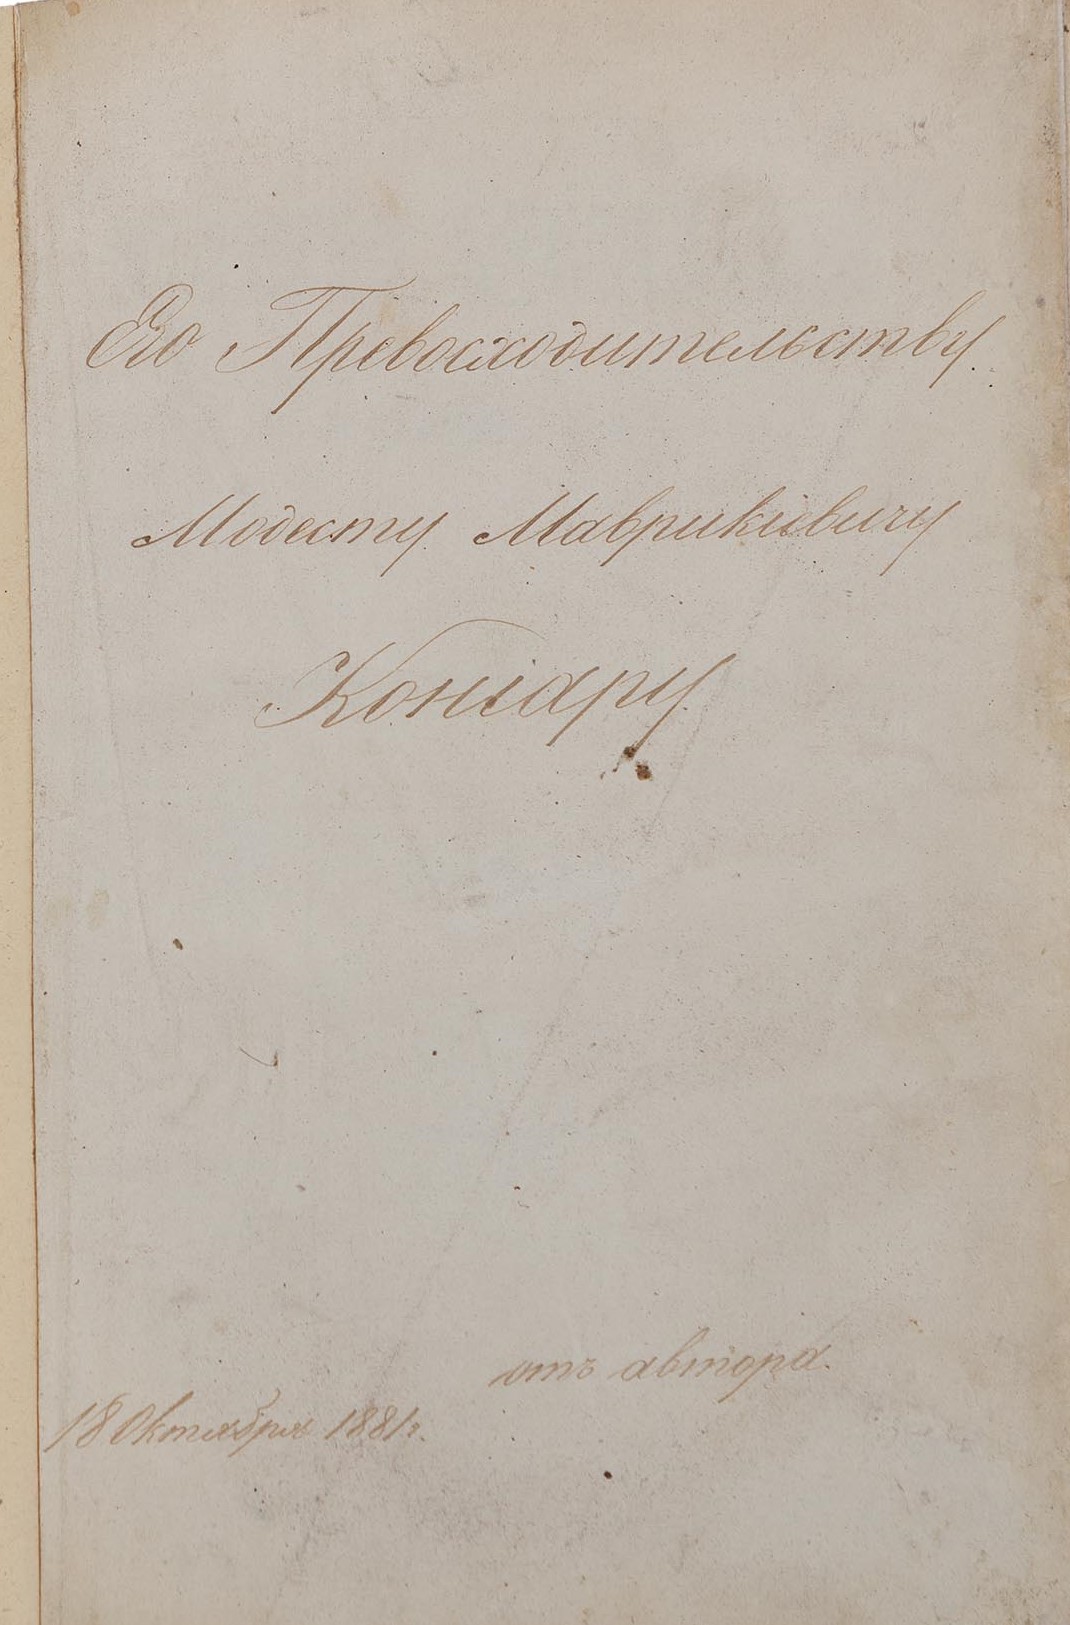 Его Превосходительству
Модесту Маврикіевичу
Коніару
отъ автора.
18 Октября 1881 г.